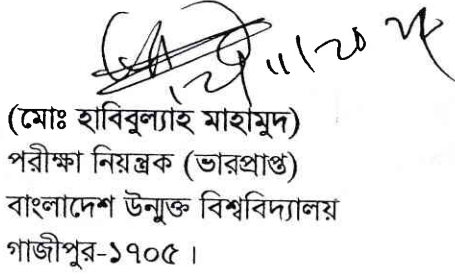 (মোঃ হাবিবুল্যাহ মাহামুদ)
পরীক্ষা নিয়ন্ত্রক (ভারপ্রাপ্ত)
বাংলাদেশ উন্মুক্ত বিশ্ববিদ্যালয়
গাজীপুর-১৭০৫।